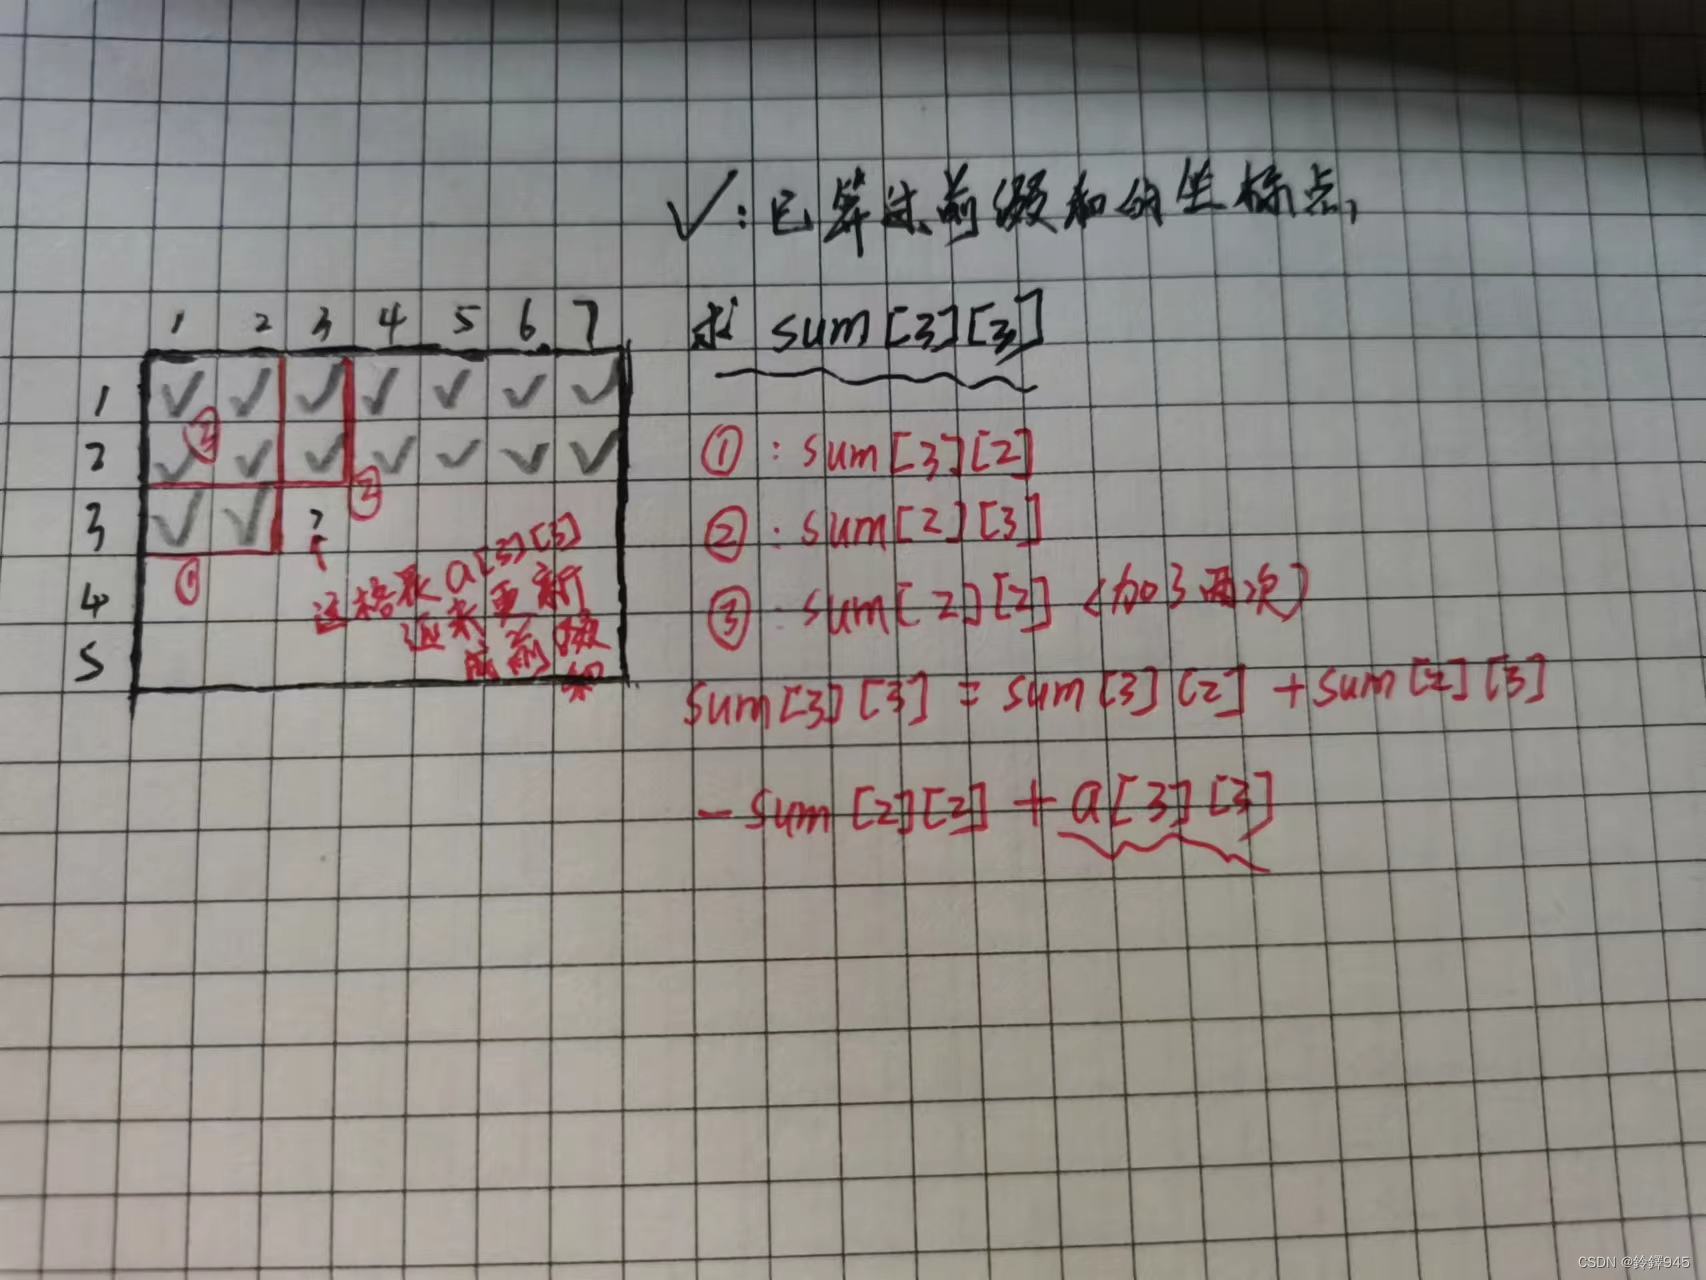 ✓：已算过前缀和的坐标点，
求 sum[3][3]
1 2 3 4 5 6 7
1 ✓ ✓ ✓ ✓ ✓ ✓ ✓
③
2 ✓ ✓ ✓ ✓ ✓ ✓ ✓
②
3 ✓ ✓ ?
①
4
5
a[3][3]
还未更新
成前缀
和
①：sum[3][2]
②：sum[2][3]
③：sum[2][2]（加了两次）
sum[3][3] = sum[3][2] + sum[2][3]
- sum[2][2] + a[3][3]
CSDN @鈴鐸945